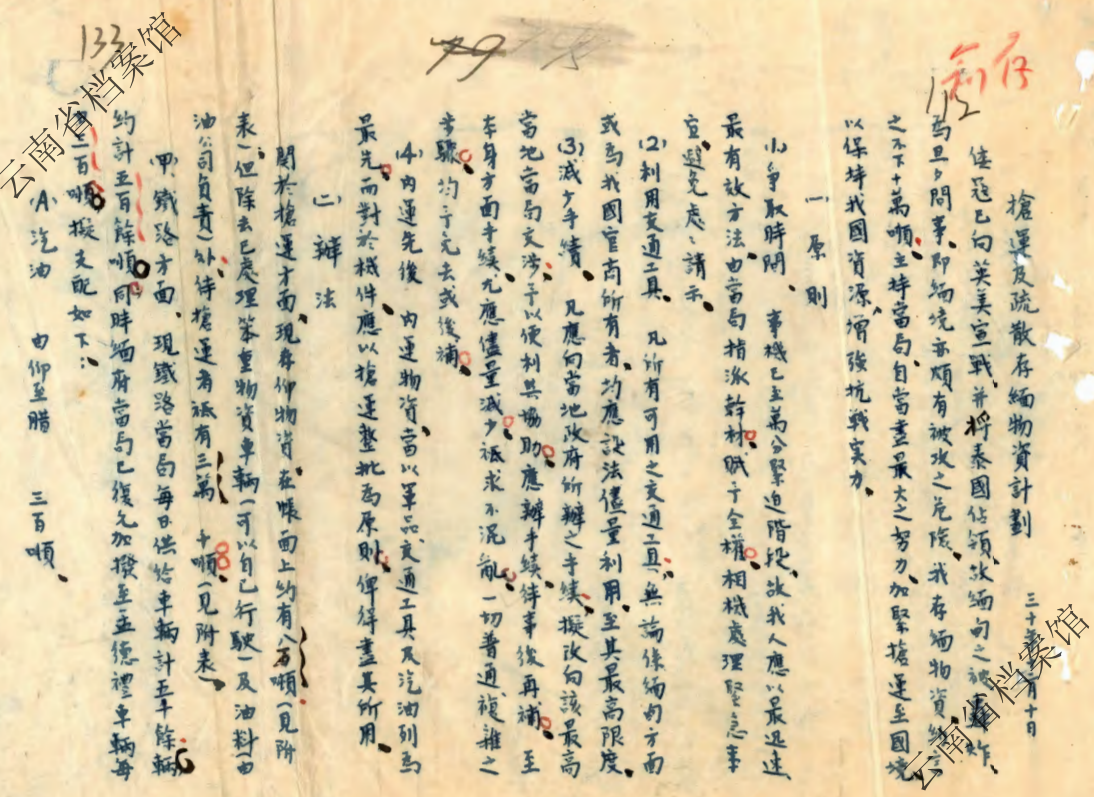 搶運及疏散存緬物資計劃
三十年 月十日
倭寇已向英美宣戰、并將泰國佔領、故緬甸之被 炸、
為旦夕問事、即緬境亦頗有被攻之危險、我存緬物資總
之不下十萬噸、主持當局、自當盡最大之努力、加緊搶運至國境
以保持我國資源、增強抗戰實力、
一 原則
(1)爭取時間 事機已至萬分緊迫階段、故我人應以最迅速
最有效方法、由當局指派幹材、賦予全權、相機處理緊急事
宜、避免處處請示、
(2)利用交通工具 凡所有可用之交通工具、無論係緬甸方面
或為我國官商所有者、均應設法儘量利用、至其最高限度、
(3)減少手續 凡應向當地政府所辦之手續、擬改向該最高
當地當局交涉、予以便利與協助、應辦手續、待事後再補、至
本身方面手續、尤應儘量減少、祗求不混亂、一切普通複雜之
步驟、均予免去或後補、
(4)內運先後 內運物資、當以軍品、交通工具及汽油列為
最先、而對於機件、應以搶運整批為原則、俾得盡其所用、
(二)辦法
關於搶運方面、現存仰物資、在帳面上約有八万噸(見附
表)但除去已處理笨重物資車輛(可以自己行駛)及油料由
油公司負責)外待搶運者祗有三萬 千噸(見附表)
(甲)鐵路方面、現鐵路當局每日供給車輛計五十餘輛
約計五百餘噸、同時緬府當局已復允加撥至孟德禮車輛每
一百噸、擬支配如下:
(A)汽油 由仰至腊 三百噸、
133
79
112
存
云南省档案馆
云南省档案馆